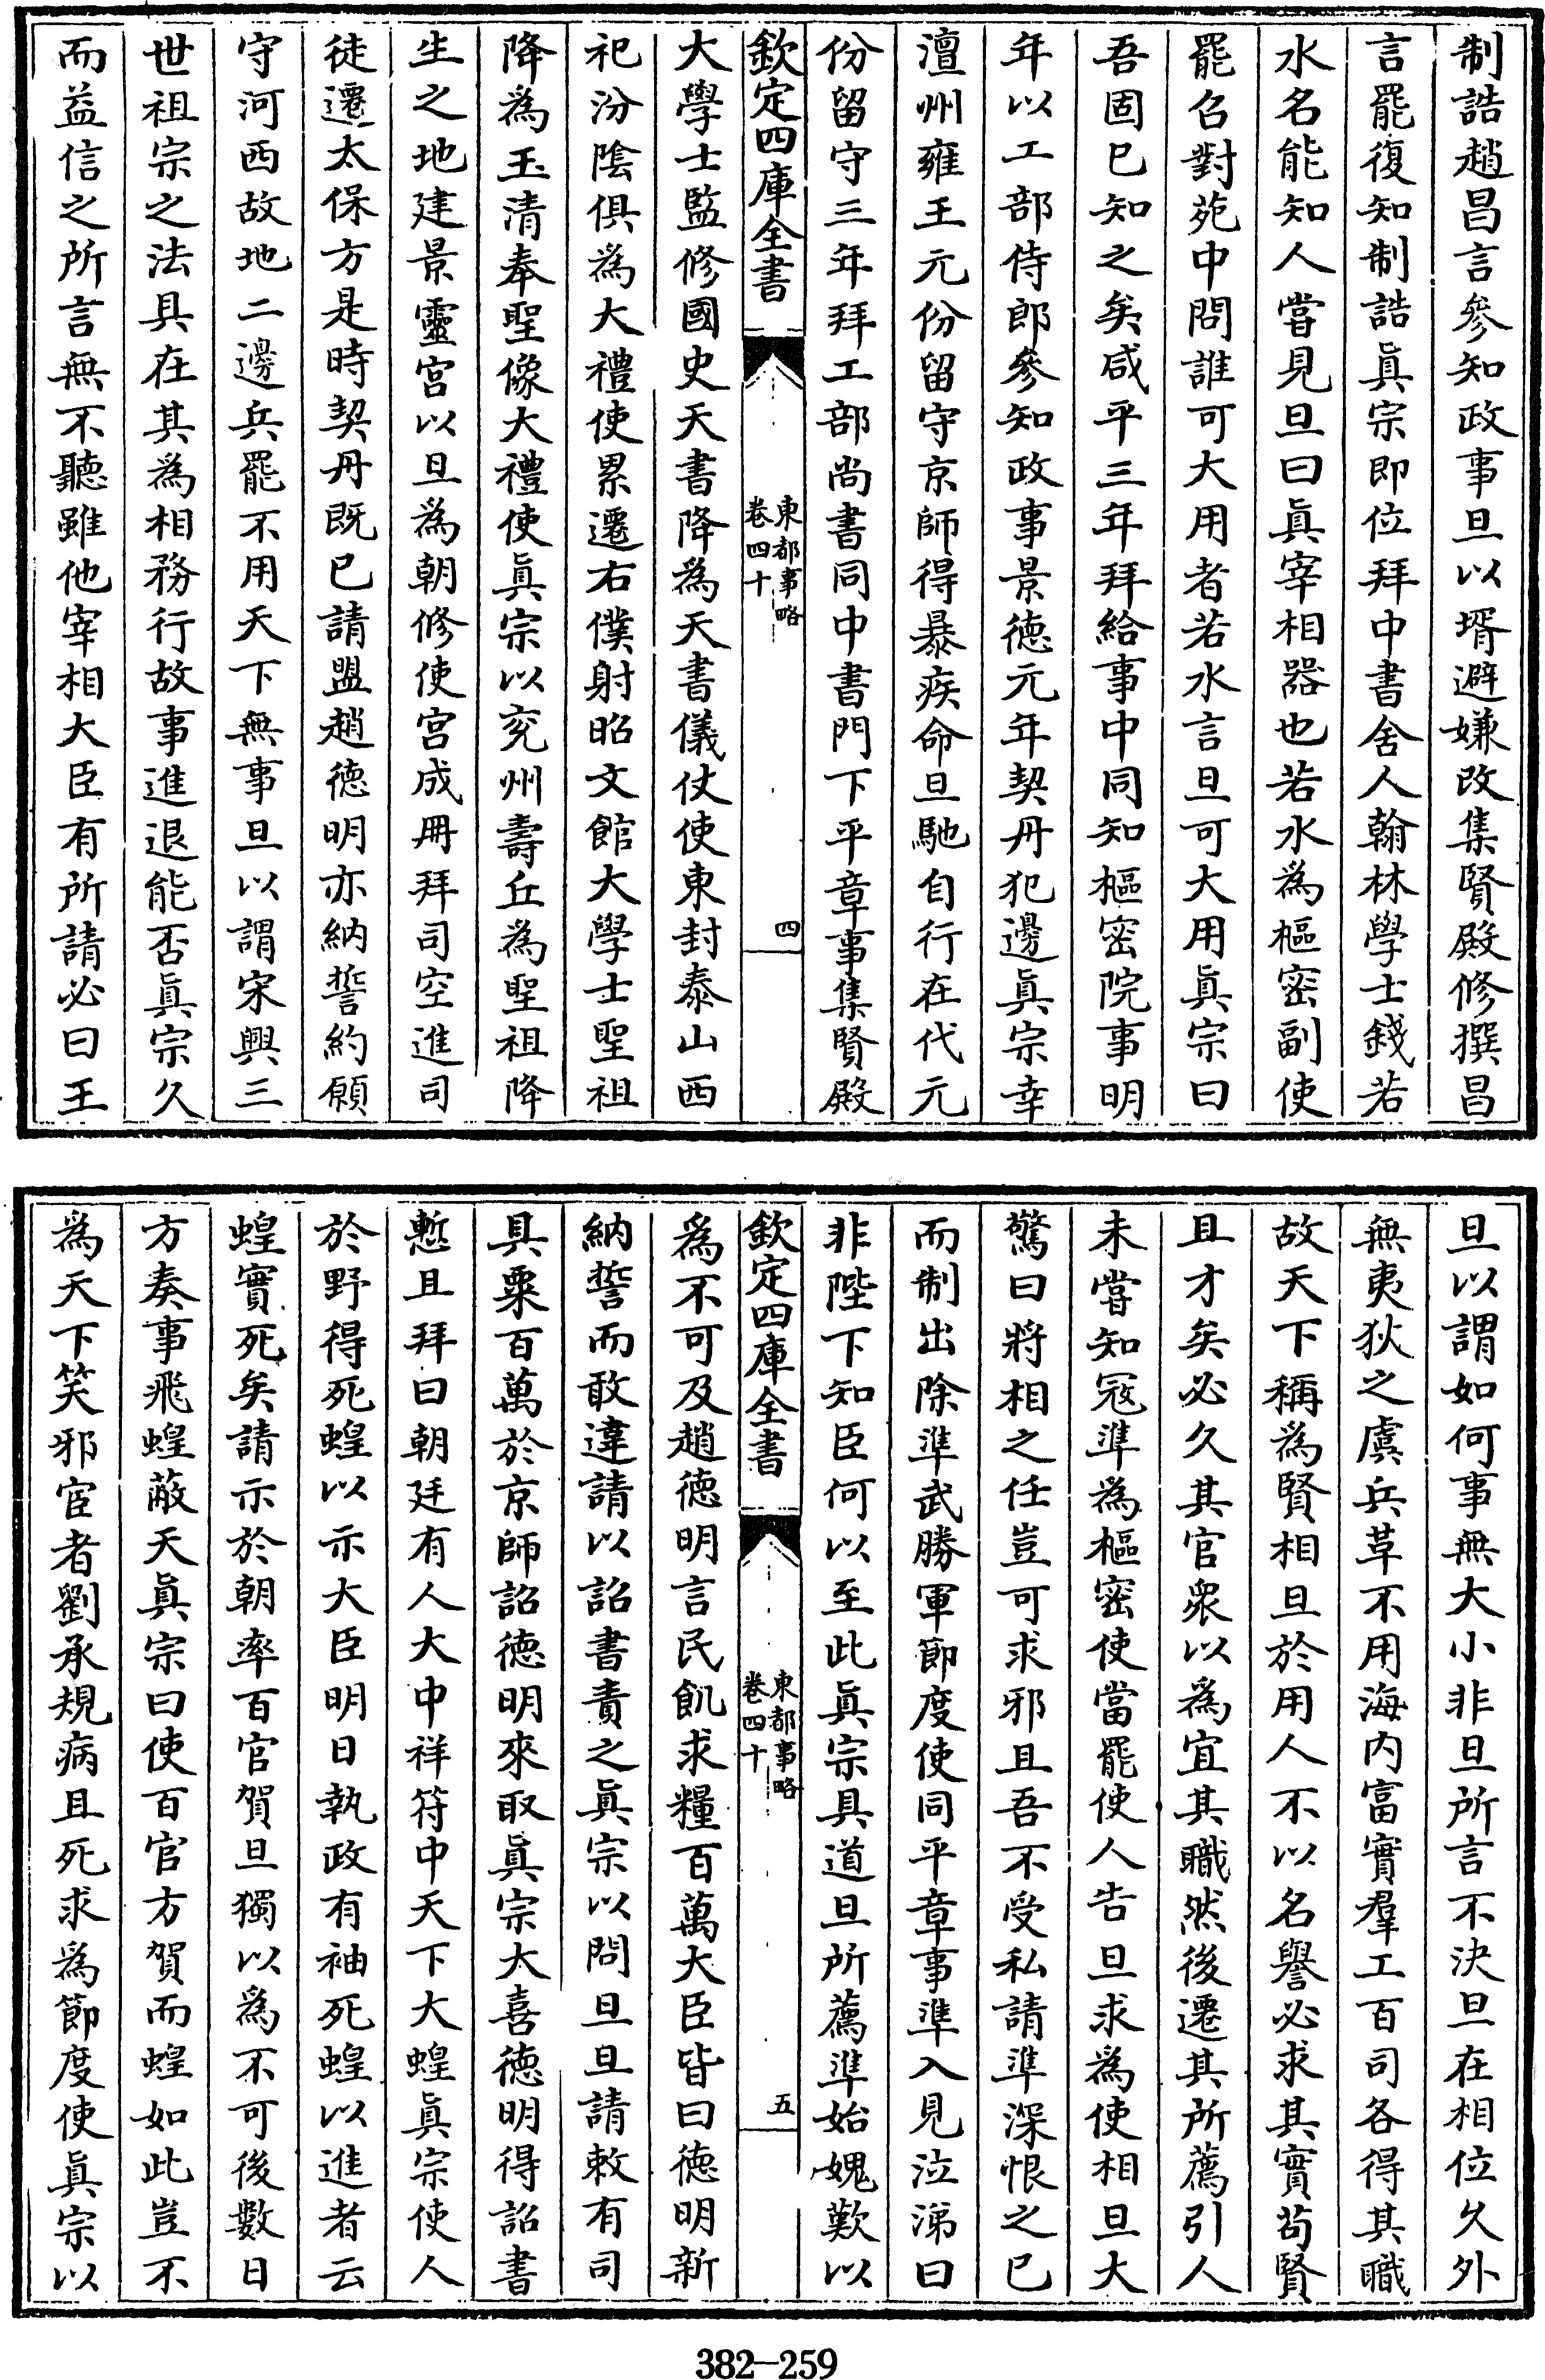 制誥趙昌言參知政事旦以壻避嫌改集賢殿修撰昌
言罷復知制誥眞宗即位拜中書舍人翰林學士錢若
水名能知人嘗見旦曰眞宰相器也若水為樞密副使
罷召對苑中問誰可大用者若水言旦可大用眞宗曰
吾固已知之矣咸平三年拜給事中同知樞密院事明
年以工部侍郎參知政事景德元年契丹犯邊眞宗幸
澶州雍王元份留守京師得暴疾命旦馳自行在代元
份留守三年拜工部尚書同中書門下平章事集賢殿
欽定四庫全書
東都事略
卷四十
四
大學士監修國史天書降為天書儀仗使東封泰山西
祀汾陰俱為大禮使累遷右僕射昭文館大學士聖祖
降為玉清奉聖像大禮使眞宗以兖州壽丘為聖祖降
生之地建景靈宮以旦為朝修使宮成冊拜司空進司
徒遷太保方是時契丹既已請盟趙德明亦納誓約願
守河西故地二邊兵罷不用天下無事旦以謂宋興三
世祖宗之法具在其為相務行故事進退能否眞宗久
而益信之所言無不聽雖他宰相大臣有所請必曰王
旦以謂如何事無大小非旦所言不決旦在相位久外
無夷狄之虞兵草不用海內富實羣工百司各得其職
故天下稱為賢相旦於用人不以名譽必求其實苟賢
且才矣必久其官衆以為宜其職然後遷其所薦引人
未嘗知冦準為樞密使當罷使人告旦求為使相旦大
驚曰將相之任豈可求邪且吾不受私請準深恨之已
而制出除準武勝軍節度使同平章事準入見泣涕曰
非陛下知臣何以至此眞宗具道旦所薦準始媿歎以
欽定四庫全書
東都事略
卷四十
五
為不可及趙德明言民飢求糧百萬大臣皆曰德明新
納誓而敢違請以詔書責之眞宗以問旦旦請敕有司
具粟百萬於京師詔德明來取眞宗大喜德明得詔書
慙且拜曰朝廷有人大中祥符中天下大蝗眞宗使人
於野得死蝗以示大臣明日執政有袖死蝗以進者云
蝗實死矣請示於朝率百官賀旦獨以為不可後數日
方奏事飛蝗蔽天眞宗曰使百官方賀而蝗如此豈不
為天下笑邪宦者劉承規病且死求為節度使眞宗以
382-259